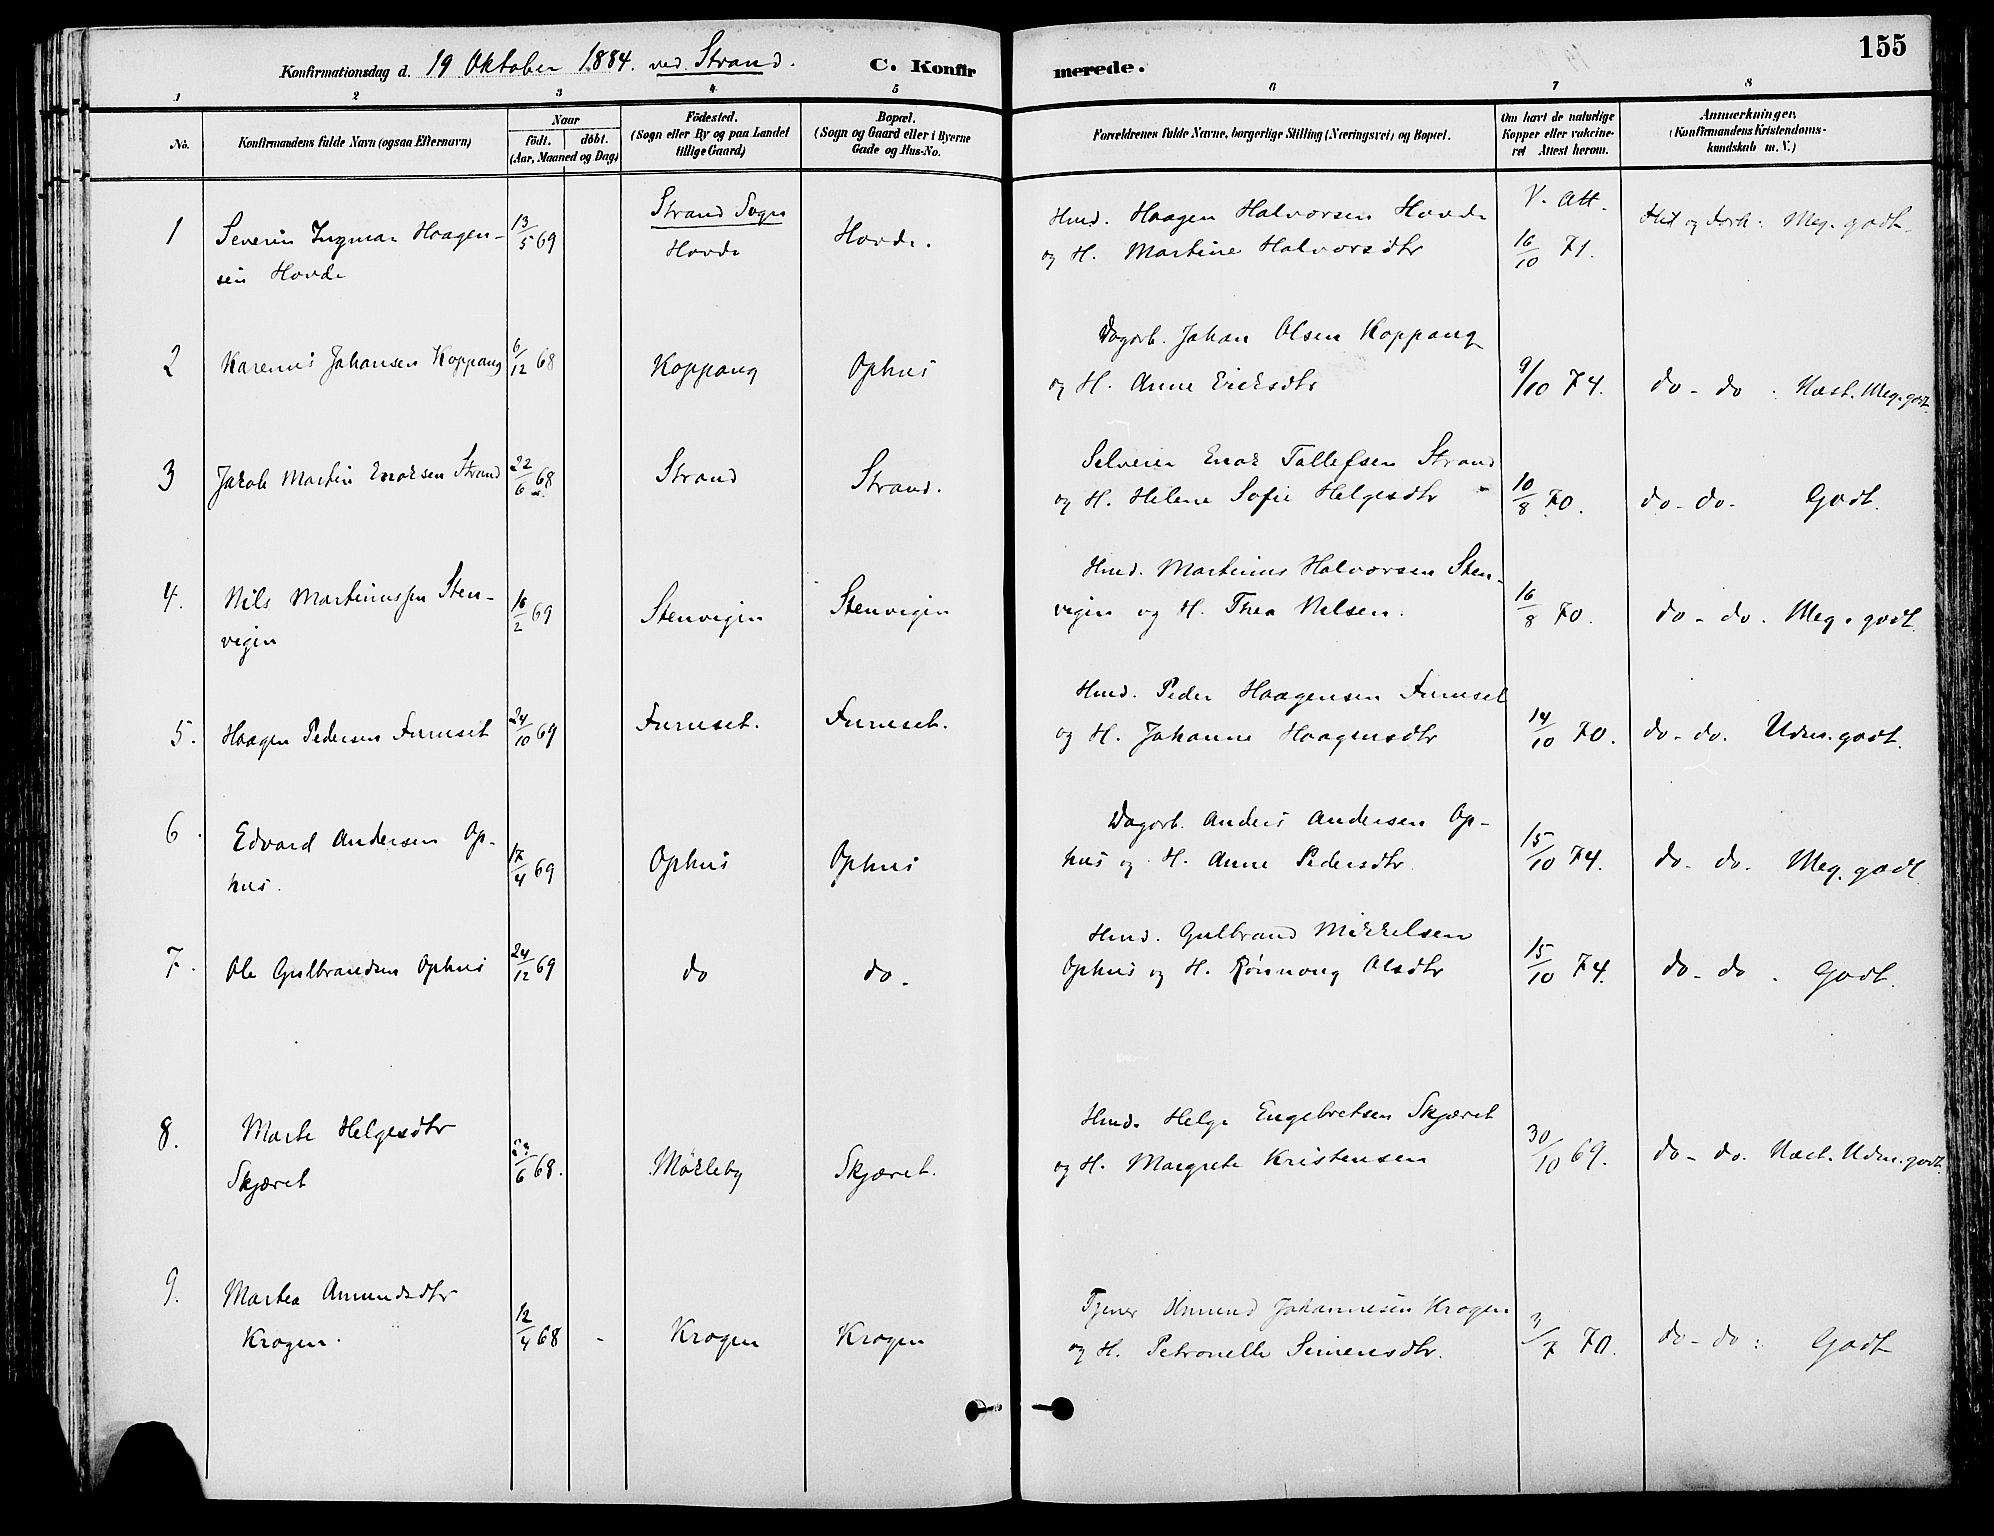 155
Konfirmationsdag d. 19 Oktober 1884. ved Strand. C. Konfirmerede.
1 2 3 4 5 6 7 8
No. Konfirmandens fulde Navn (ogsaa Efternavn) Naar født. døbt. (Aar, Maaned og Dag) Fødested. (Sogn eller By og paa Landet tillige Gaard) Bopæl. (Sogn og Gaard eller i Byerne Gade og Hus-No. Forældrenes fulde Navne, borgerlige Stilling (Næringsvei) og Bopæl. Om havt de naturlige Kopper eller vakcineret Attest herom. Anmærkninger, (Konfirmandens Kristendomskundskab m. V.)
1 Severin Ingmar Haagen- 13/5 69 Strand Sogn Hovde. Hmd. Haagen Halvorsen Hovde V. Att. Flid og Forh: Meg. godt.
sen Hovde Hovde og H. Martine Halvorsdtr 16/10 71.
2 Karenus Johansen Koppang 6/12 68 Koppang Ophus Dagarb. Johan Olsen Koppang
og H. Anne Eriksdtr 9/10 74. do - do : Næst. Meg. godt.
3 Jakob Martin Enoksen Strand 22/6 68 Strand Strand. Selveier Enok Tollefsen Strand
og H. Helene Sofie Helgesdtr 10/8 70. do - do - Godt.
4. Nils Martinussen Sten- 16/2 69 Stenvigen Stenvigen Hmd. Martinus Halvorsen Sten-
vigen vigen og H. Thea Nilsen. 16/8 70. do - do. Meg. godt.
5. Haagen Pedersen Furuset 24/10 69 Furuset. Furuset. Hmd. Peder Haagensen Furuset
og H. Johanne Haagensdtr 14/10 70. do - do. Udm. godt.
6. Edvard Andersen Op- 17/4 69 Ophus Ophus Dagarb. Anders Andersen Op-
hus. hus og H. Anne Pedersdtr. 15/10 74. do - do. Meg. godt.
7. Ole Gulbrandsen Ophus 24/12 69 do do. Hmd. Gulbrand Mikkelsen
Ophus og H. Rönnoug Olsdtr 15/10 74. do - do . Godt.
8. Marte Helgesdtr Hmd. Helge Engebretsen Skjæret
Skjæret /6 68. Mökleby Skjæret. og H. Margrete Kristensen 30/10 69. do - do. Næst. Udm. godt.
9. Martea Amundsdtr Tjener Amund Johannesen Krogen
Krogen. 12/4 68 - Krogen Krogen og H. Petronelle Simensdtr. 3/7 70. do - do : Godt